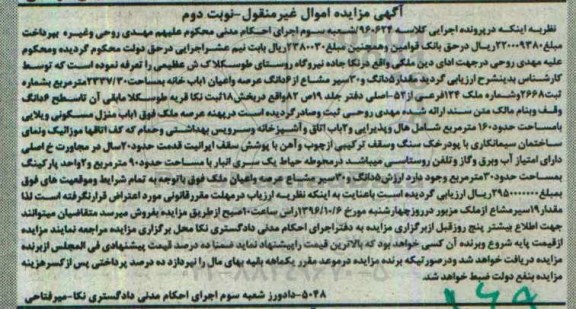 آگهی مزایده اموال غیرمنقول-نوبت دوم
نظریه اینکه درپرونده اجرایی کلاسه ۹۶۰۶۲۴/ شعبه سوم اجرای احکام مدنی محکوم علیهم مهدی روحی وغیره بپرداخت
مبلغ ۲۲۰۰۰۹۳۸۰ریال درحق بانک قوامین وهمچنین مبلغ ۲۳۸۰۰۳۰ریال بابت نیم عشراجرایی درحق دولت محکوم گردیده ومحکوم
علیه مهدی روحی درجهت ادای دین ملکی واقع درنکا جاده نیروگاه روستای طوسکلا ک ش عظیمی را تعرفه نموده است که توسط
کارشناس بدینشرح ارزیابی گردید مقدار۵دانگ و۳۰سیر مشاع از۶دانگ عرصه واعیان ۱باب خانه بمساحت۲۳۳۷/۳۰مترمربع بشماره
ثبت۲۶۶۸وشماره ملک ۱۲۴فرعی از۵۳-اصلی دفتر جلد ۱۹ص ۸۲واقع دربخش۱۸ثبت نکا قریه طوسکلا مابقی آن تاسطح ۶دانگ
وقف وبنام مالک متن سند ارائه شده مهدی روحی ثبت وصادرگردیده است درپهنه عرصه ملک فوق ۱باب منزل مسکونی ویلایی
بامساحت حدود۱۶۰ مترمربع شامل هال وپذیرایی و۲باب اتاق وآشپزخانه وسرویس بهداشتی وحمام که کف اتاقها موزائیک ونمای
ساختمان سیمانکاری با پودرخک سنگ وسقف ترکیبی ازچوب وآهن با پوشش سقف ایرانیت قدمت حدود۲۰سال در مجاورت خ اصلی
دارای امتیاز آب وبرق وگاز وتلفن روستاسی میباشد درمحوطه حیاط یک سری انبار با مساحت حدود۹۰ مترمربع و۲واحد پارکینگ
بمساحت حدود۳۰مترمربع وجود دارد ارزش۵دانگ و۳۰سیر مشاع عرصه واعیان ملک فوق باتوجه به تمام شرایط وموقعیت های فوق
بمبلغ ۲۹۵۰۰۰۰۰۰۰ریال ارزیابی گردیده است باعنایت به اینکه نظریه ارزیاب درمهلت مقررقانونی مورد اعتراض قرارنگرفته است لذا
مقدار۱۹سیرمشاع ازملک مزبور درروزچهارشنبه مورخ ۱۳۹۶/۱۰/۶راس ساعت۱۰صبح ازطریق مزایده بفروش میرسد متقاضیان میتوانند
جهت اطلاع بیشتر پنج روزقبل ازبرگزاری مزایده به دفتراجرای احکام مدنی دادگستری نکا محل برگزاری مزایده مراجعه نمایند مزایده
ازقیمت پایه شروع وبرنده آن کسی خواهد بود که بالاترین قیمت راپیشنهاد نماید ضمنا ده درصد قیمت پیشنهادی فی المجلس ازبرنده
مزایده دریافت خواهد شد ودرصورتیکه برنده مزایده درموعد مقرر یکماهه بقیه بهای مال را نپردازد ده درصد پرداختی پس ازکسرهزینه
مزایده بنفع دولت ضبط خواهد شد.
۵۰۴۸-دادورز شعبه سوم اجرای احکام مدنی دادگستری نکا-میرفتاحی